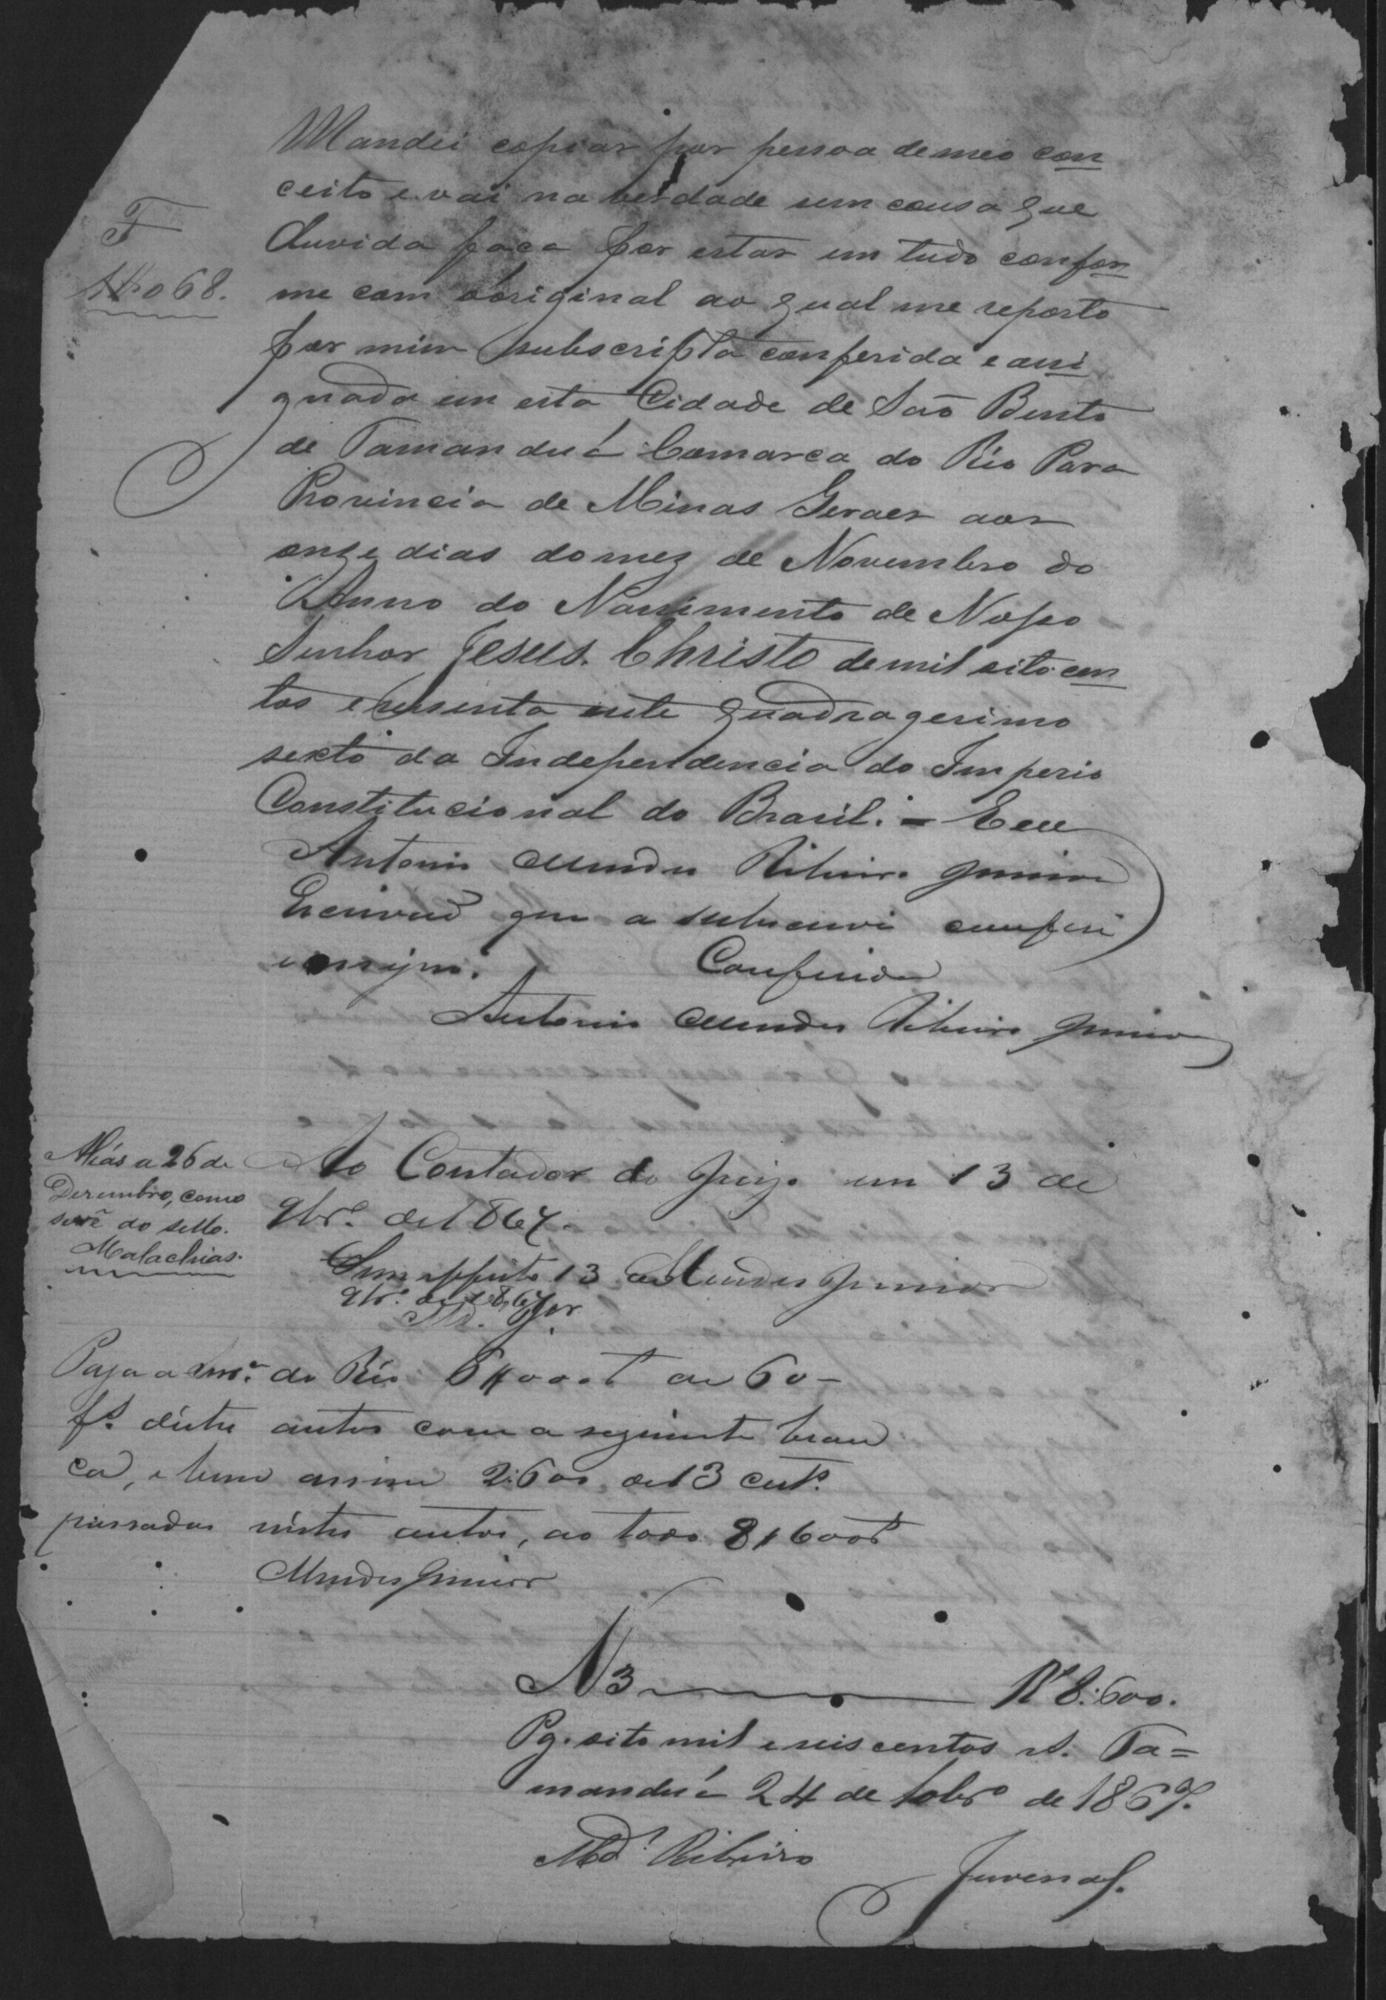 Mandei copiar por pessoa de meo con
ceito e vai na verdade sem cousa que
duvida faça por estar em tudo confor
me com o original ao qual me reporto
por mim subscripta conferida e assi
gnada em esta Cidade de São Bento
de Tamanduá Comarca do Rio Para
Provincia de Minas Geraes aos
onze dias do mez de Novembro do
Anno do Nascimento de Nosso
Senhor Jesus Christo de mil oito cen
tos e sessenta e sete quadragesimo
sexto da Independencia do Imperio
Constitucional do Brasil. = Eu
Antonio Mendes Ribeiro Junior
Escrivaõ que a subscrevi conferi
e assigno. Conferida
Antonio Mendes Ribeiro Junior
F
68.
Ao Contador do Juizo em 13 de
9br.º de 1867.
Mendes Junior
13
9br.º de 1867
Aliás a 26 de
Dezembro, como
se vê do sello.
Malachias.
Paga a do 60
f.s d'estes autos com a seguinte bran
ca, e bem assim 2:600 de 13 cert.s
passadas nestes autos, ao todo 8#600
Mendes Junior
N 3 Rs 8:600.
Pg. oito mil e seis centos rs. Ta=
manduá 24 de 10br.º de 1867.
Md.s Ribeiro Juvenal.